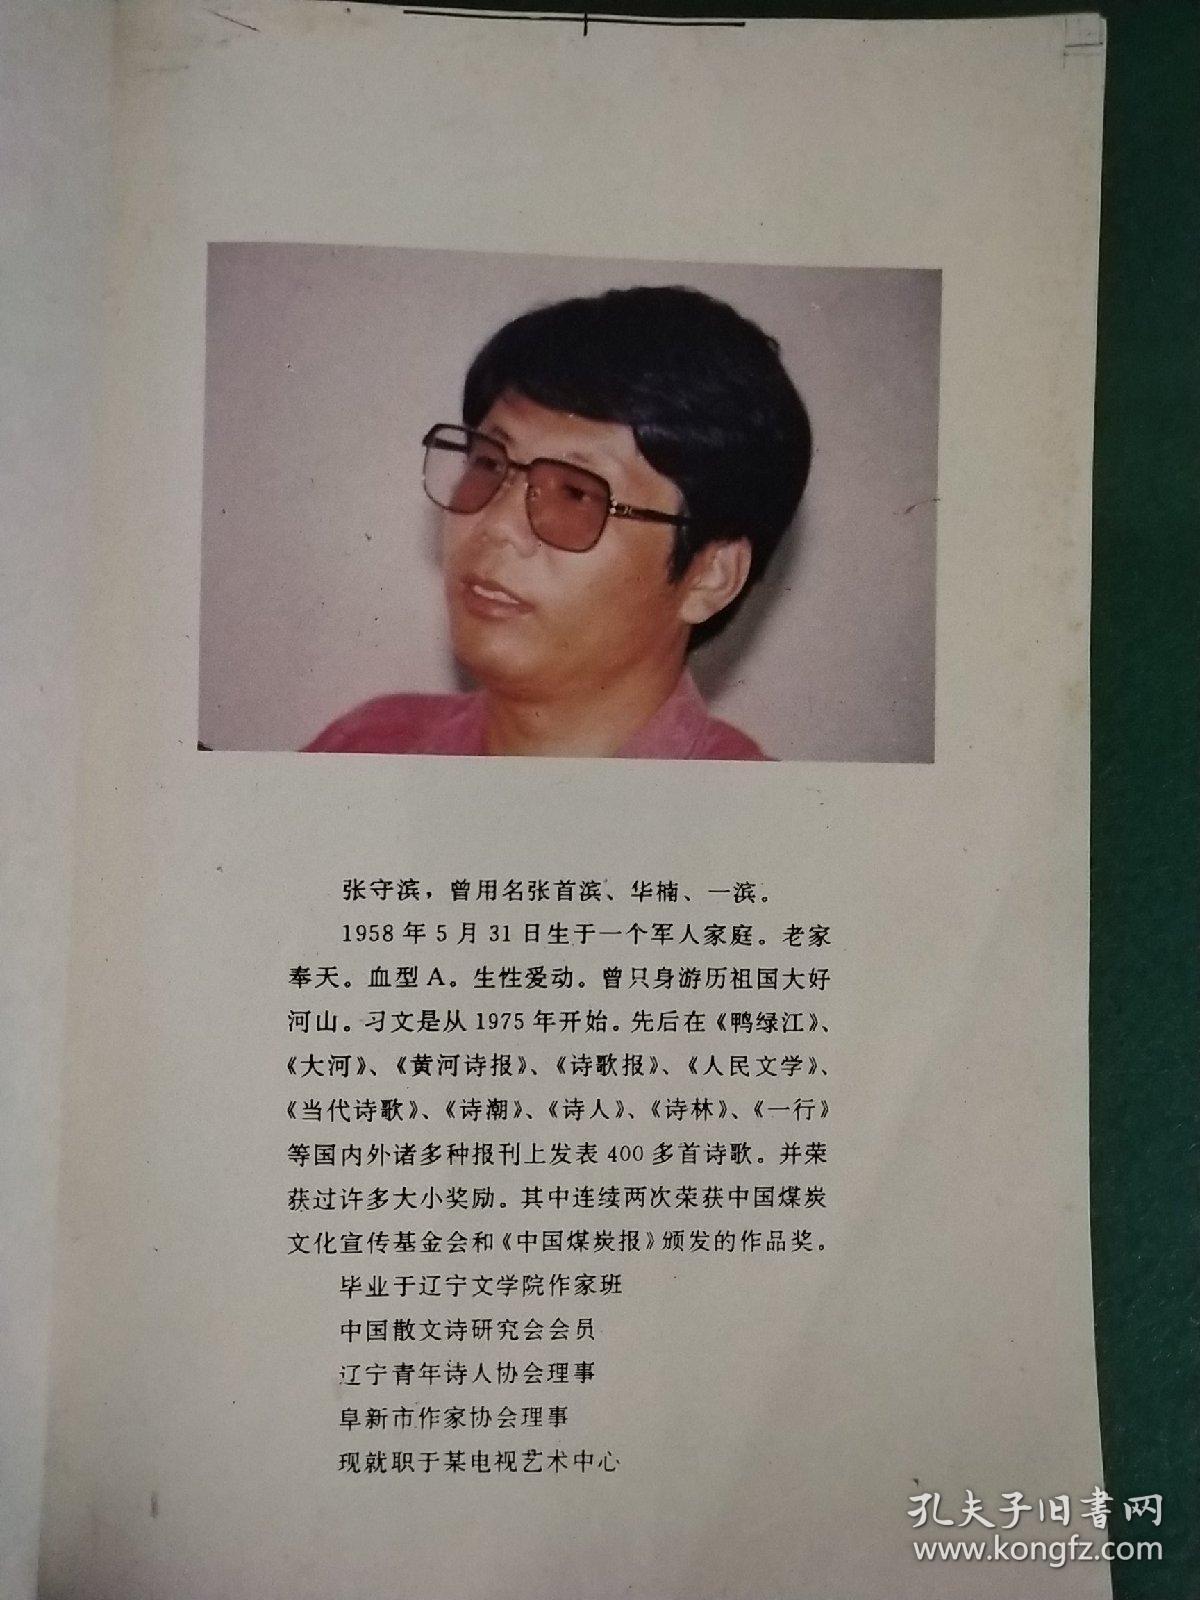 张守滨，曾用名张首滨、华楠、一滨。
1958年5月31日生于一个军人家庭。老家
奉天。血型A。生性爱动。曾只身游历祖国大好
河山。习文是从1975年开始。先后在《鸭绿江》、
《大河》、《黄河诗报》、《诗歌报》、《人民文学》、
《当代诗歌》、《诗潮》、《诗人》、《诗林》、《一行》
等国内外诸多种报刊上发表400多首诗歌。并荣
获过许多大小奖励。其中连续两次荣获中国煤炭
文化宣传基金会和《中国煤炭报》颁发的作品奖。
毕业于辽宁文学院作家班
中国散文诗研究会会员
辽宁青年诗人协会理事
阜新市作家协会理事
现就职于某电视艺术中心
孔夫子旧書网
www.kongfz.com